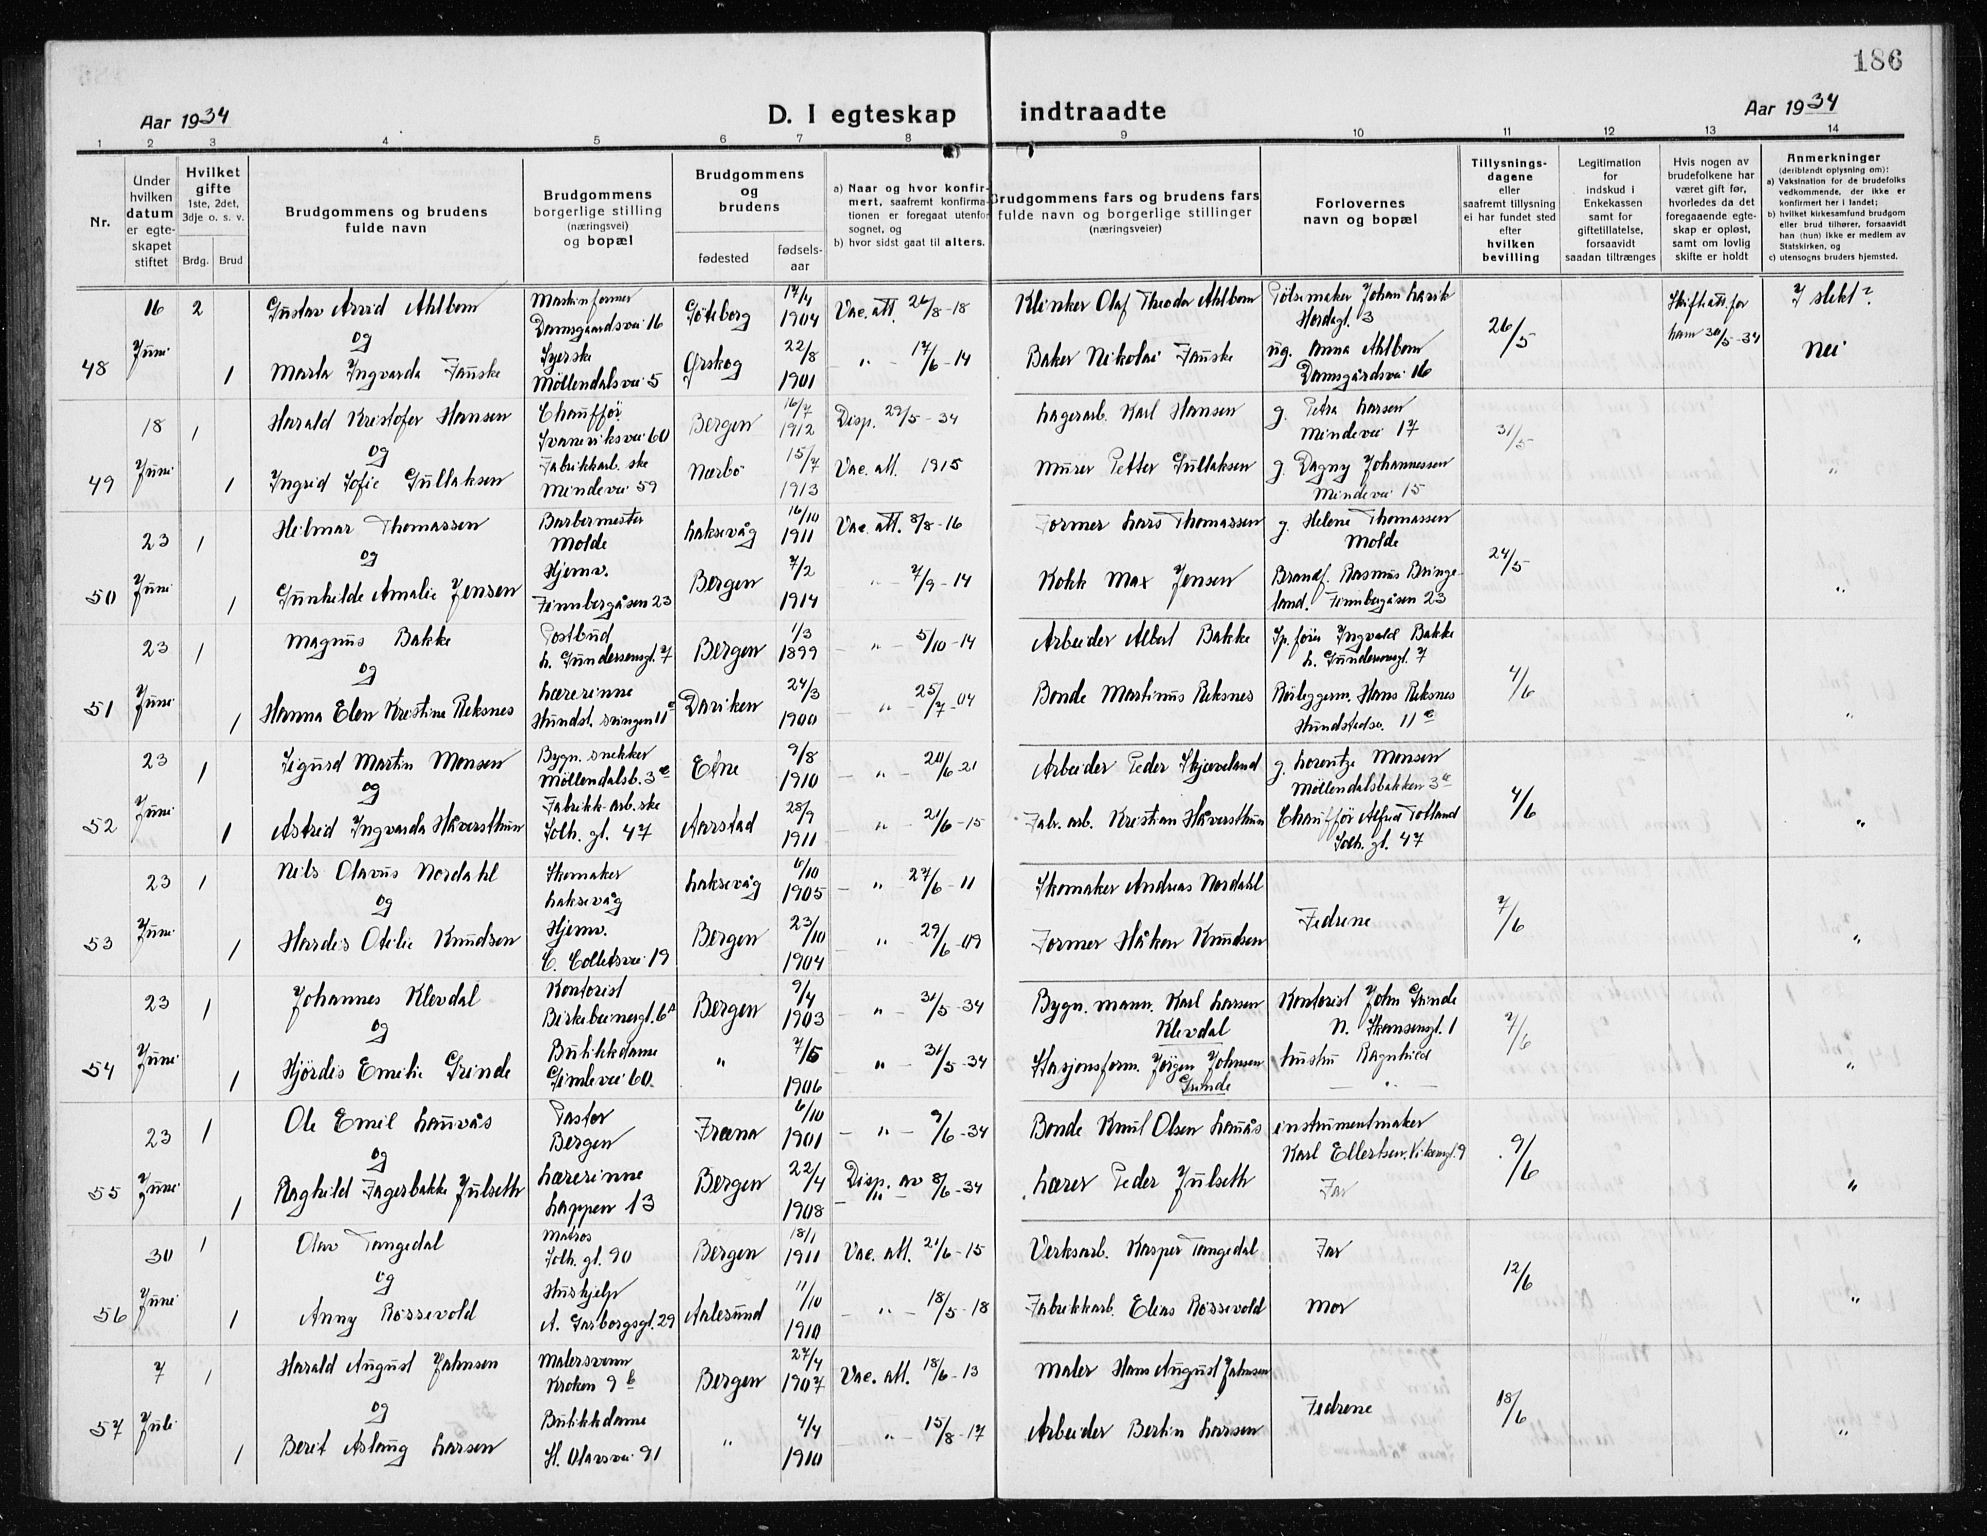 186
Aar 1934
D. I egteskap indtraadte
Aar 1934
1 2 3 4 5 6 7 8 9 10 11 12 13 14
Nr.
Under hvilken datum er egteskapet stiftet
Hvilket gifte 1ste, 2det, 3dje o. s. v.
Brdg. Brud
Brudgommens og brudens fulde navn
Brudgommens borgerlige stilling (næringsvei) og bopæl
Brudgommens og brudens
fødested
fødsels-aar
a) Naar og hvor konfirmert, saafremt konfirmationen er foregaat utenfor sognet, og
b) hvor sidst gaat til alters.
Brudgommens fars og brudens fars fulde navn og borgerlige stillinger (næringsveier)
Forlovernes navn og bopæl
Tillysningsdagene eller saafremt tillysning ei har fundet sted efter hvilken bevilling
Legitimation for indskud i Enkekassen samt for giftetillatelse, forsaavidt saadan tiltrænges
Hvis nogen av brudefolkene har været gift før, hvorledes da det foregaaende egteskap er opløst, samt om lovlig skifte er holdt
Anmerkninger (deriblandt oplysning om):
a) Vaksination for de brudefolks vedkommende, der ikke er konfirmert her i landet;
b) hvilket kirkesamfund brudgom eller brud tilhører, forsaavidt han (hun) ikke er medlem av Statskirken, og
c) utensogns bruders hjemsted.
48 16 Juni 2 Gustav Arvid Ahlbom Maskinformer Damsgaardsvei 16 Göteborg 17/4 1904 Vac. att. 26/8-18 Klinker Olaf Theodor Ahlbom Pølsemaker Johan Larik Hordagt. 3 26/5 Skifteatt. for ham 30/5-34 I slekt?
og
1 Marta Ingvarda Fauske Syerske Möllendalsvei 5 Ørskog 22/8 1901 " - 17/6-14 Baker Nikolai Fauske ug. Anna Ahlbom Damsgårdsvei 16 nei
49 18 Juni 1 Harald Kristofer Hansen Chauffør Svaneviksvei 60 Bergen 16/7 1912 Disp. 29/5-34 Lagerarb. Karl Hansen g. Petra Larsen Mindevei 17 31/5
og
1 Ingrid Sofie Gullaksen Fabrikkarb.ske Mindevei 59 Nærbö 15/7 1913 Vac. att. 1915 Murer Petter Gullaksen g. Dagny Johannessen Mindevei 15 "
50 23 Juni 1 Hilmar Thomassen Barbermester Molde Laksevåg 16/10 1911 Vac att. 8/8-16 Former Lars Thomassen g. Helene Thomassen Molde 24/5
og
1 Gunhilde Amalie Jensen Hjemv. Finnbergåsen 23 Bergen 7/2 1914 " - 7/9-14 Kokk Max Jensen Brandf. Rasmus Bringeland. Finnbergåsen 23 "
51 23 Juni 1 Magnus Bakke Postbud L. Gundersensgt. 7 Bergen 1/3 1899 - " - 5/10-14 Arbeider Albert Bakke Sp.fører Ingvald Bakke L. Gundersensgt. 7 4/6
og
1 Hanna Elen Kristine Reksnes Lærerinne Hundst. svingen 11e Daviken 24/3 1900 - " - 25/7-04 Bonde Martinus Reksnes Rörleggerm. Hans Reksnes Hundstedsv. 11e "
52 23 Juni 1 Sigurd Martin Monsen Bygn. snekker Möllendalsb. 3e Etne 9/8 1910 - " - 20/6-21 Arbeider Peder Skjæveland g. Lorentze Monsen Möllendalsbakken 3e 4/6
og
1 Astrid Ingvarda Håversthun Fabrikk-arb.ske Solh. gt. 47 Aarstad 28/9 1911 - " - 21/6-15 Fab. arb. Kristian Håversthun Chauffør Alfred Totland Solh. gt. 47 "
53 23 Juni 1 Nils Olavus Nordahl Skomaker Laksevåg Laksevåg 6/10 1905 - " - 27/6-11 Skomaker Andreas Nordahl Fedrene 7/6
og
1 Hardis Otilie Knudsen Hjemv. C. Colletsvei 19 Bergen 23/10 1904 - " - 29/6-09 Former Håkon Knudsen "
54 23 Juni 1 Johannes Klevdal Kontorist Birkebeinergt. 6A Bergen 9/4 1903 - " - 31/5-34 Bygn. mann. Karl Larsen Klevdal Kontorist John Grinde N. Skansengt. 1 7/6
og
1 Hjördis Emilie Grinde Butikkdame Gimlevei 60 " 7/5 1906 - " - 31/5-34 Stasjonsform. Jørgen Johnsen Grinde hustru Ragnhild - " - "
55 23 Juni 1 Ole Emil Lauvås Pastor Bergen Fræna 6/10 1901 - " - 9/6-34 Bonde Knut Olsen Lauås instrumentmaker Karl Ellertsen. Vikengt. 9 9/6
og
1 Raghild Fagerbakke Julseth Lærerinne Lappen 13 Bergen 22/4 1908 Disp. av 8/6-34 Lærer Peder Julseth Far "
56 30 Juni 1 Olav Tangedal Matros Solh. gt. 90 Bergen 18/1 1911 Vac. att. 21/6-15 Verksarb. Kasper Tangedal Far 12/6
og
1 Anny Røssevold Hushjelp A. Garborgsgt. 29 Aalesund 11/10 1910 - " - 18/5-18 Fabrikkarb. Elias Røssevold Mor "
57 7 Juli 1 Harald August Jahnsen Malersvenn Kroken 9b Bergen 27/4 1907 Vac. att. 18/6-13 Maler Hans August Jahnsen Fedrene 18/6
og
1 Berit Aslaug Larsen Butikkdame St. Olavsvei 91 " 4/4 1910 - " - 15/8-17 Arbeider Bertin Larsen "